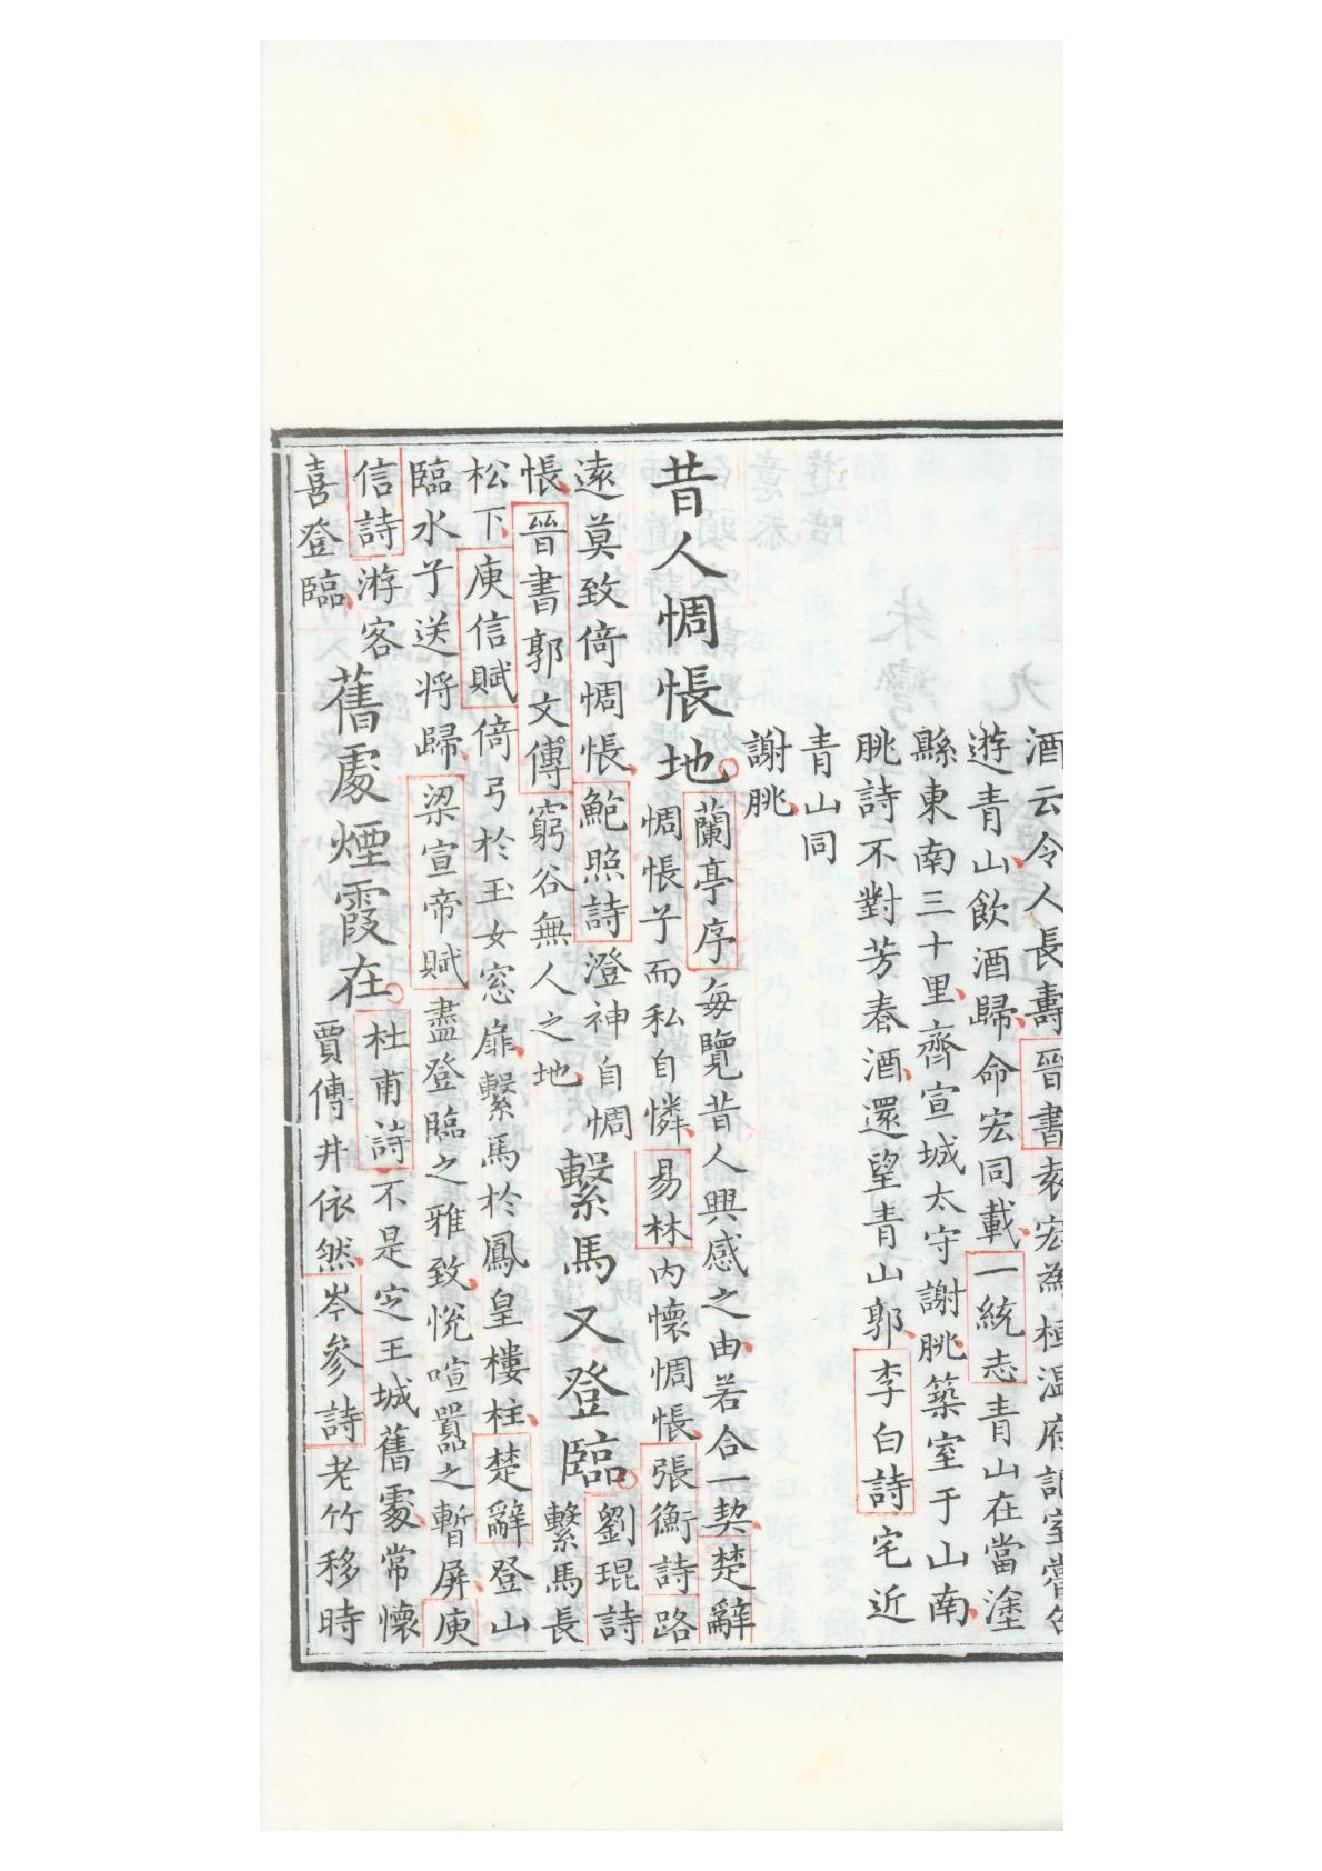 酒云令人長壽晉書袁宏為桓溫府記室嘗
遊青山飲酒歸命宏同載一統志青山在當塗
縣東南三十里齊宣城太守謝朓築室于山南
朓詩不對芳春酒還望青山郭李白詩宅近
青山同
謝朓
昔人惆悵地
蘭亭序每覽昔人興感之由若合一契楚辭
惆悵子而私自憐易林內懷惆悵張衡詩路
遠莫致倚惆悵鮑照詩澄神自惆
悵晉書郭文傳窮谷無人之地
繫馬又登臨
劉琨詩
繫馬長
松下庾信賦倚弓於玉女窓扉繫馬於鳳皇樓柱楚辭登山
臨水子送將歸梁宣帝賦盡登臨之雅致悅喧囂之暫屏庾
信詩游客
喜登臨
舊處煙霞在
杜甫詩不是定王城舊處常懷
賈傅井依然岑參詩老竹移時